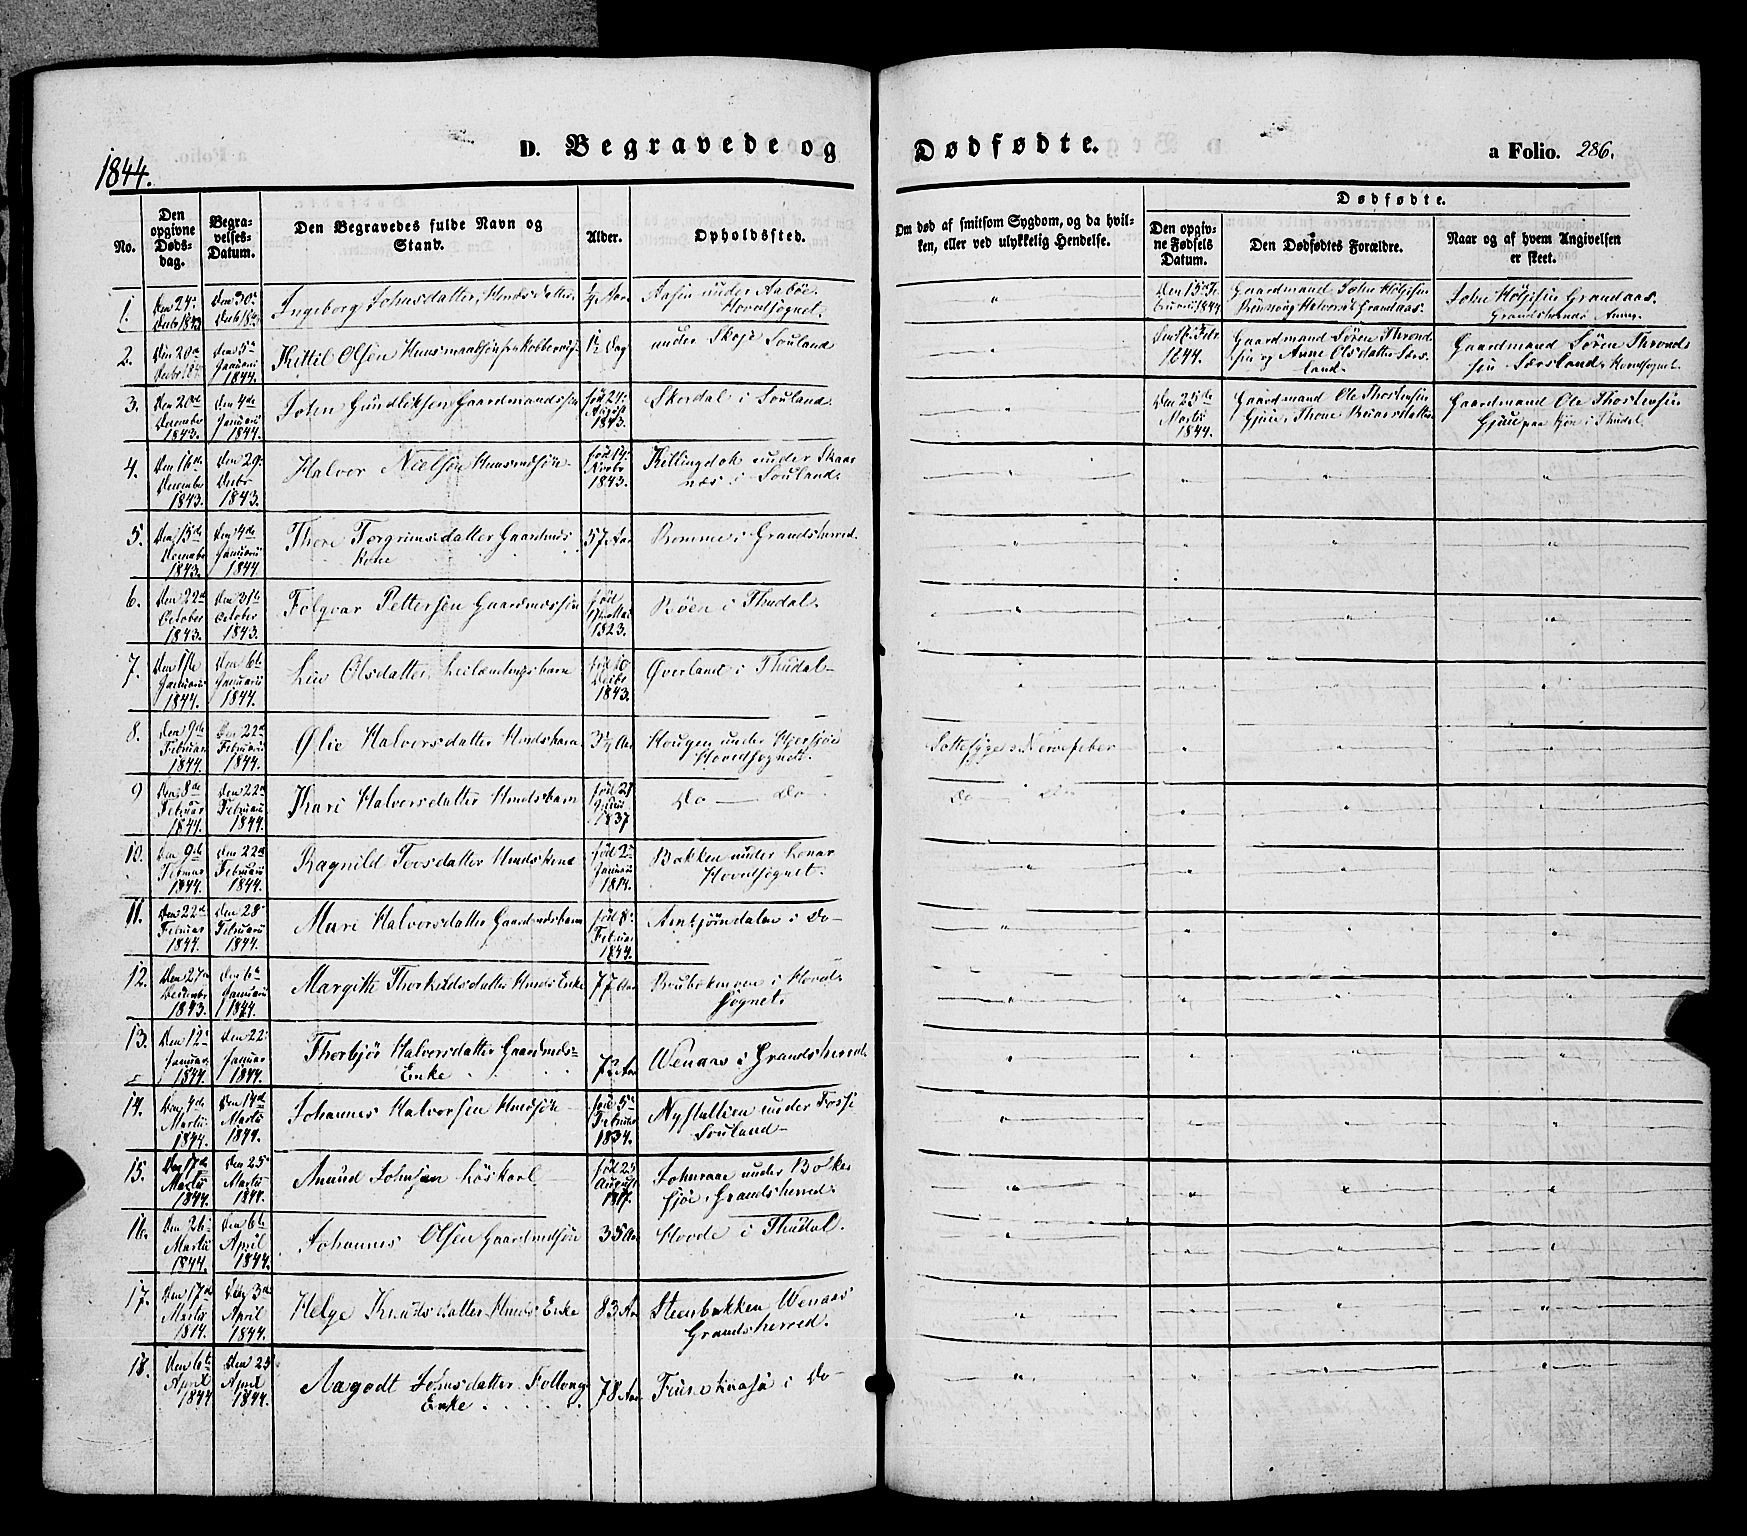 1844.
D. Begravede og
Dødfødte.
a Folio. 286.
No.
Den opgivne Døds-dag.
Begra-velses-Datum.
Den Begravedes fulde Navn og Stand.
Alder.
Opholdssted.
Om død af smitsom Sygdom, og da hvil-
ken, eller ved ulykkelig Hendelse.
Dødfødte.
Den opgiv-ne Fødsels Datum.
Den Dødfødtes Forældre.
Naar og af hvem Angivelsen er skeet.
1. Den 24de Decbr 1843 Den 30 Decbr 1843 Ingeborg Johnsdatter, ¼ Aar Aasen under Aabøe
Hovedsognet.
Den 15de 1844 Gaardmand John
Halvorsd. Grandaas. John Grandaas.
2. Den 20de Decbr 1843 Den 5te Januar 1844. Kittil Olsen Huusmandssøn 1½ Dag under Skoje Souland
1844. Gaardmand Søren Thrond
sen og Anne Olsdatter
land. Gaardmand Søren Thrond
sen Hovedsognet.
3. Den 20de December 1843. Den 4de Januar 1844. John Gundliksen Gaardmandssøn fød 24 August 1843. Skordal i Souland.
Den 25de Marts 1844. Gaardmand Ole Thorstensen
Gjuve, Thone Gaardmand Ole Thorstensen
Gjuve paa i Thudal.
4. Den 16de December 1843. Den 29 Decbr 1843. Halvor Nielsøn Huusmdsøn fød 14 Novbr 1843. under Skaar
næs i Souland.
5. Den 15de 1843. Den 4de Januar 1844. Thore Torgrimsdatter Gaardmds
Kone 57 Aar Bomme i Grandsherred.
6. Den 22de October 1843. Den 31te October 1843. Folqvar Pettersen Gaardmdssøn fød 1823. Bøen i Thudal.
7. Den 1ste Januar 1844. Den 6te Januar 1844. Liv Olsdatter, Leilændingsbarn fød 10 Decbr 1843. Øverland i Thudal
8. Den 9de Februar 1844. Den 22de Februar 1844. Ølie Halvorsdatter Hmdsbarn 3¼ Aar Hougen under Hjersjøe
Hovedsognet. Sottesyge Nervefeber
9 Den 8de Februar 1844. Den 22de Februar 1844. Kari Halvorsdatter Hmdsbarn fød 28 1837 Do Do
Do Do
10. Den 9de Februar 1844. Den 22de Februar 1844. Ragnild Tovsdatter Hmdskone fød 2 Januar 1814. Bakken under Lonar
Hovedsognet.
11. Den 22de Februar 1844. Den 28 Februar 1844. Mari Halvorsdatter Gaardmdsbarn fød 8 Februar 1844. Amtjørndalen i Do
12. Den 27 December 1843. Den 6te Januar 1844. Margitte Thorkildsdatter Hmds Enke 77 Aar i Hoved
sognet.
13. Den 12 Januar 1844. Den 22 Januar 1844. Thorbjør Halvorsdatter Gaardmds
Enke 72 Aar Wenaas i Grandsherred.
14. Den 4de Marts 1844. Den 14de Marts 1844. Johannes Halvorsen Hmdsøn fød 5 Februar 1834. Nystullien under Fosse
Souland
15. Den 17de Marts 1844. Den 25 Marts 1844. Anund Johnsen Løskarl fød 23 August 1817. Johnsaae under Bolke
sjøe, Grandsherred.
16. Den 26 Marts 1844. Den 6te April 1844. Johannes Olsen Gaardmdsøn 35 Aar Hovde i Thudal.
17. Den 17de Marts 1844. Den 3de April 1844. Helge Knudsdatter Hmds Enke 83 Aar Steenbakken Wenaas
Grandsherred.
18. Den 6te April 1844 Den 25 April 1844. Aagodt Johnsdatter
Enke 78 Aar i Do